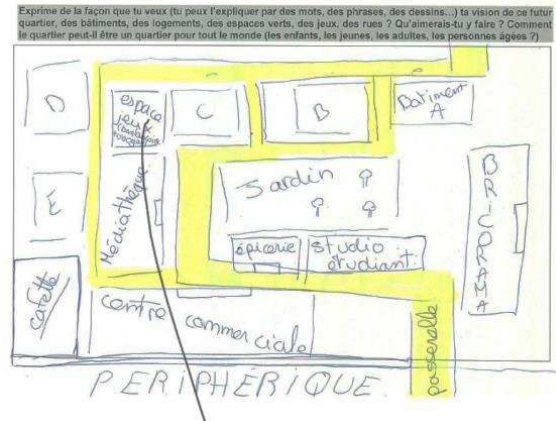 Exprime de la façon que tu veux (tu peux l'expliquer par des mots, des phrases, des dessins...) ta vision de ce futur
quartier, des bâtiments, des logements, des espaces verts, des jeux, des rues ? Qu'aimerais-tu y faire ? Comment
le quartier peut-il être un quartier pour tout le monde (les enfants, les jeunes, les adultes, les personnes âgées ?)
D
espace
jeux
toboggan
C
B
Batiment
A
E
Médiathèque
Jardin
BRICORAMA
épicerie
studio
étudiant
cafette
centre commerciale
passerelle
PERIPHERIQUE